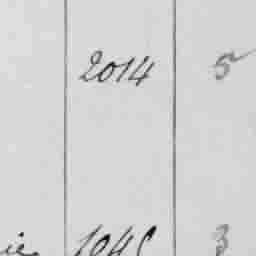 2014 5
ie 1045 3